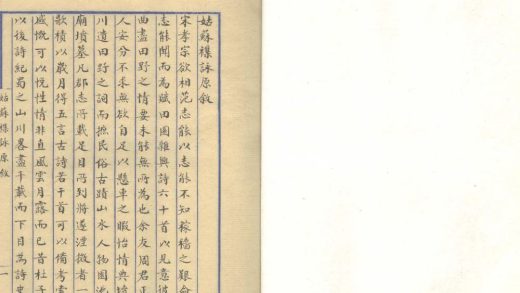 姑蘇樸詠原敘
宋孝宗欲相范志能以志能不知稼穡之艱命
志能聞而為賦田園雜興詩六十首以見意彼
曲盡田野之情要未能無所為也余友周君正
人安分不求無欲自足以懸車之暇怡情典
川遺田野之詞而摭民俗古蹟山水人物園池
廟墳墓凡郡志所載足目所到將遂湮微者一
歌積以歲月得五言古詩若干首可以備考
感慨可以悅性情非直風雲月露而已昔杜子
以後詩紀蜀之山川畧盡千載而下目為詩史
姑蘇樸詠原敘
一